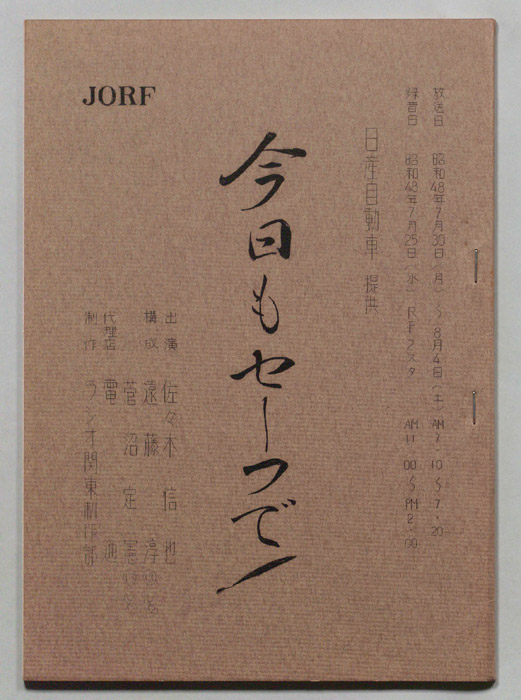 放送日 昭和48年7月30日(月)〜8月4日(土) AM7:10〜7:20
録音日 昭和48年7月25日(水) RFラスタ AM11:00〜PM2:00
日産自動車 提供
JORF
今日もセーフで!
出演 佐々木信也
構成 遠藤淳
菅沼定憲
代理店 電通
制作 ラジオ関東制作部